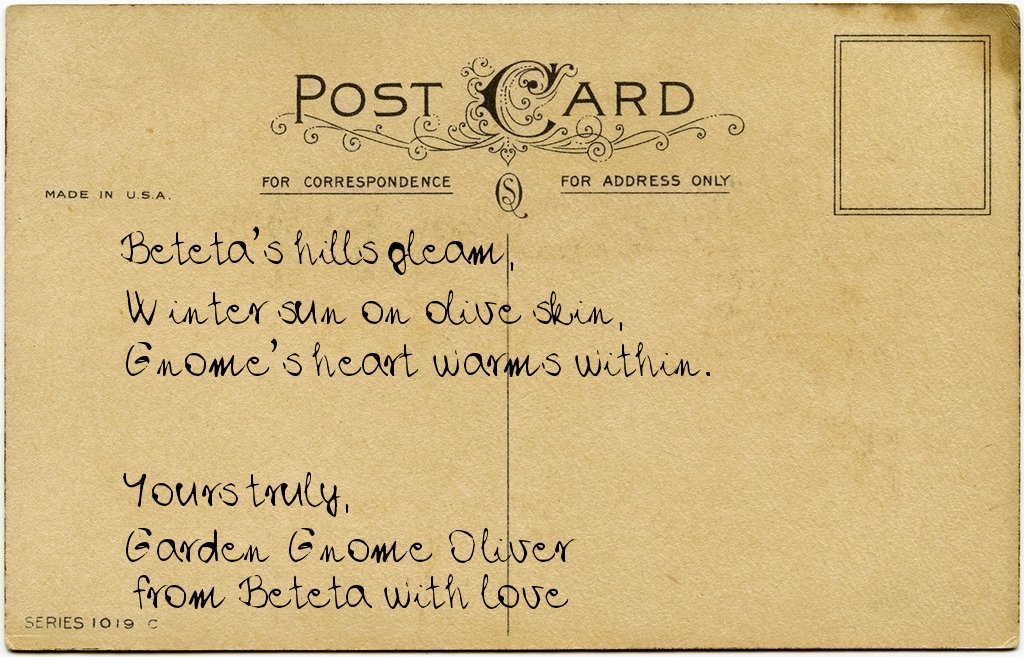 POST CARD
FOR CORRESPONDENCE
FOR ADDRESS ONLY
MADE IN U.S.A.
Beteta's hills gleam,
Winter sun on olive skin,
Gnome's heart warms within.
Yours truly,
Garden Gnome Oliver
from Beteta with love
SERIES 1019 C